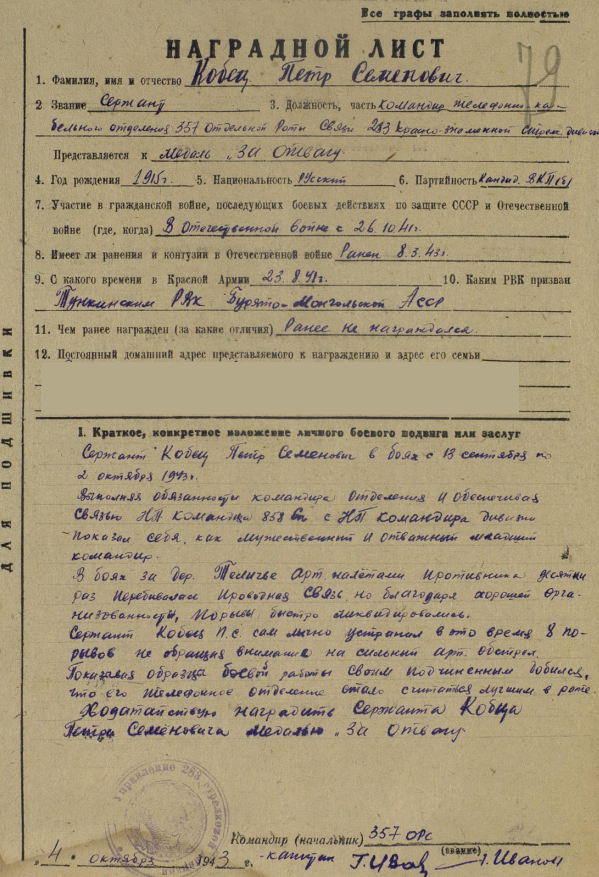 Все графы заполнять полностью
79
НАГРАДНОЙ ЛИСТ
1. Фамилия, имя и отчество Кобец Петр Семенович.
2 Звание Сержант 3. Должность, часть Командир телефонно-ка-
бельного отделения 357 Отдельной Роты Связи 283 Красно-знаменной
Представляется к Медаль „За Отвагу"
4. Год рождения 1915г. 5. Национальность Русский 6. Партийность Кандид. ВКП(б)
7. Участие в гражданской войне, последующих боевых действиях по защите СССР и Отечественной
войне (где, когда) В Отечественной войне с 26.10.41г.
8. Имеет ли ранения и контузии в Отечественной войне Ранен 8.3.43г.
9. С какого времени в Красной Армии 23.8.41г. 10. Каким РВК призван
Тункинским РВК Бурято-Монгольской АССР
11. Чем ранее награжден (за какие отличия) Ранее не награждался.
12. Постоянный домашний адрес представляемого к награждению и адрес его семьи
ДЛЯ ПОДШИВКИ
I. Краткое, конкретное изложение личного боевого подвига или заслуг
Сержант Кобец Петр Семенович в боях с 13 сентября по
2 октября 1943г.
Выполняя обязанности командира отделения и обеспечивая
Связью НП командира 858 с НП командира дивизии
показал себя, как мужественный и отважный младший
командир.
В боях за дер. Артналетами противника десятки
раз перебивалась проводная связь, но благодаря хорошей орга-
низованности, порывы быстро ликвидировались.
Сержант Кобец П.С. сам лично устранил в это время 8 по-
рывов не обращая внимания на сильный арт. обстрел.
Показывая образцы боевой работы своим подчиненным добился,
что его телефонное отделение стало считаться лучшим в роте.
Ходатайствую наградить Сержанта Кобца
Петра Семеновича Медалью „За Отвагу"
Управление 283 стрелковой дивизии
Командир (начальник) 357 ОРС
(звание)
„4" октября 1943 г. -капитан Г. Иванов